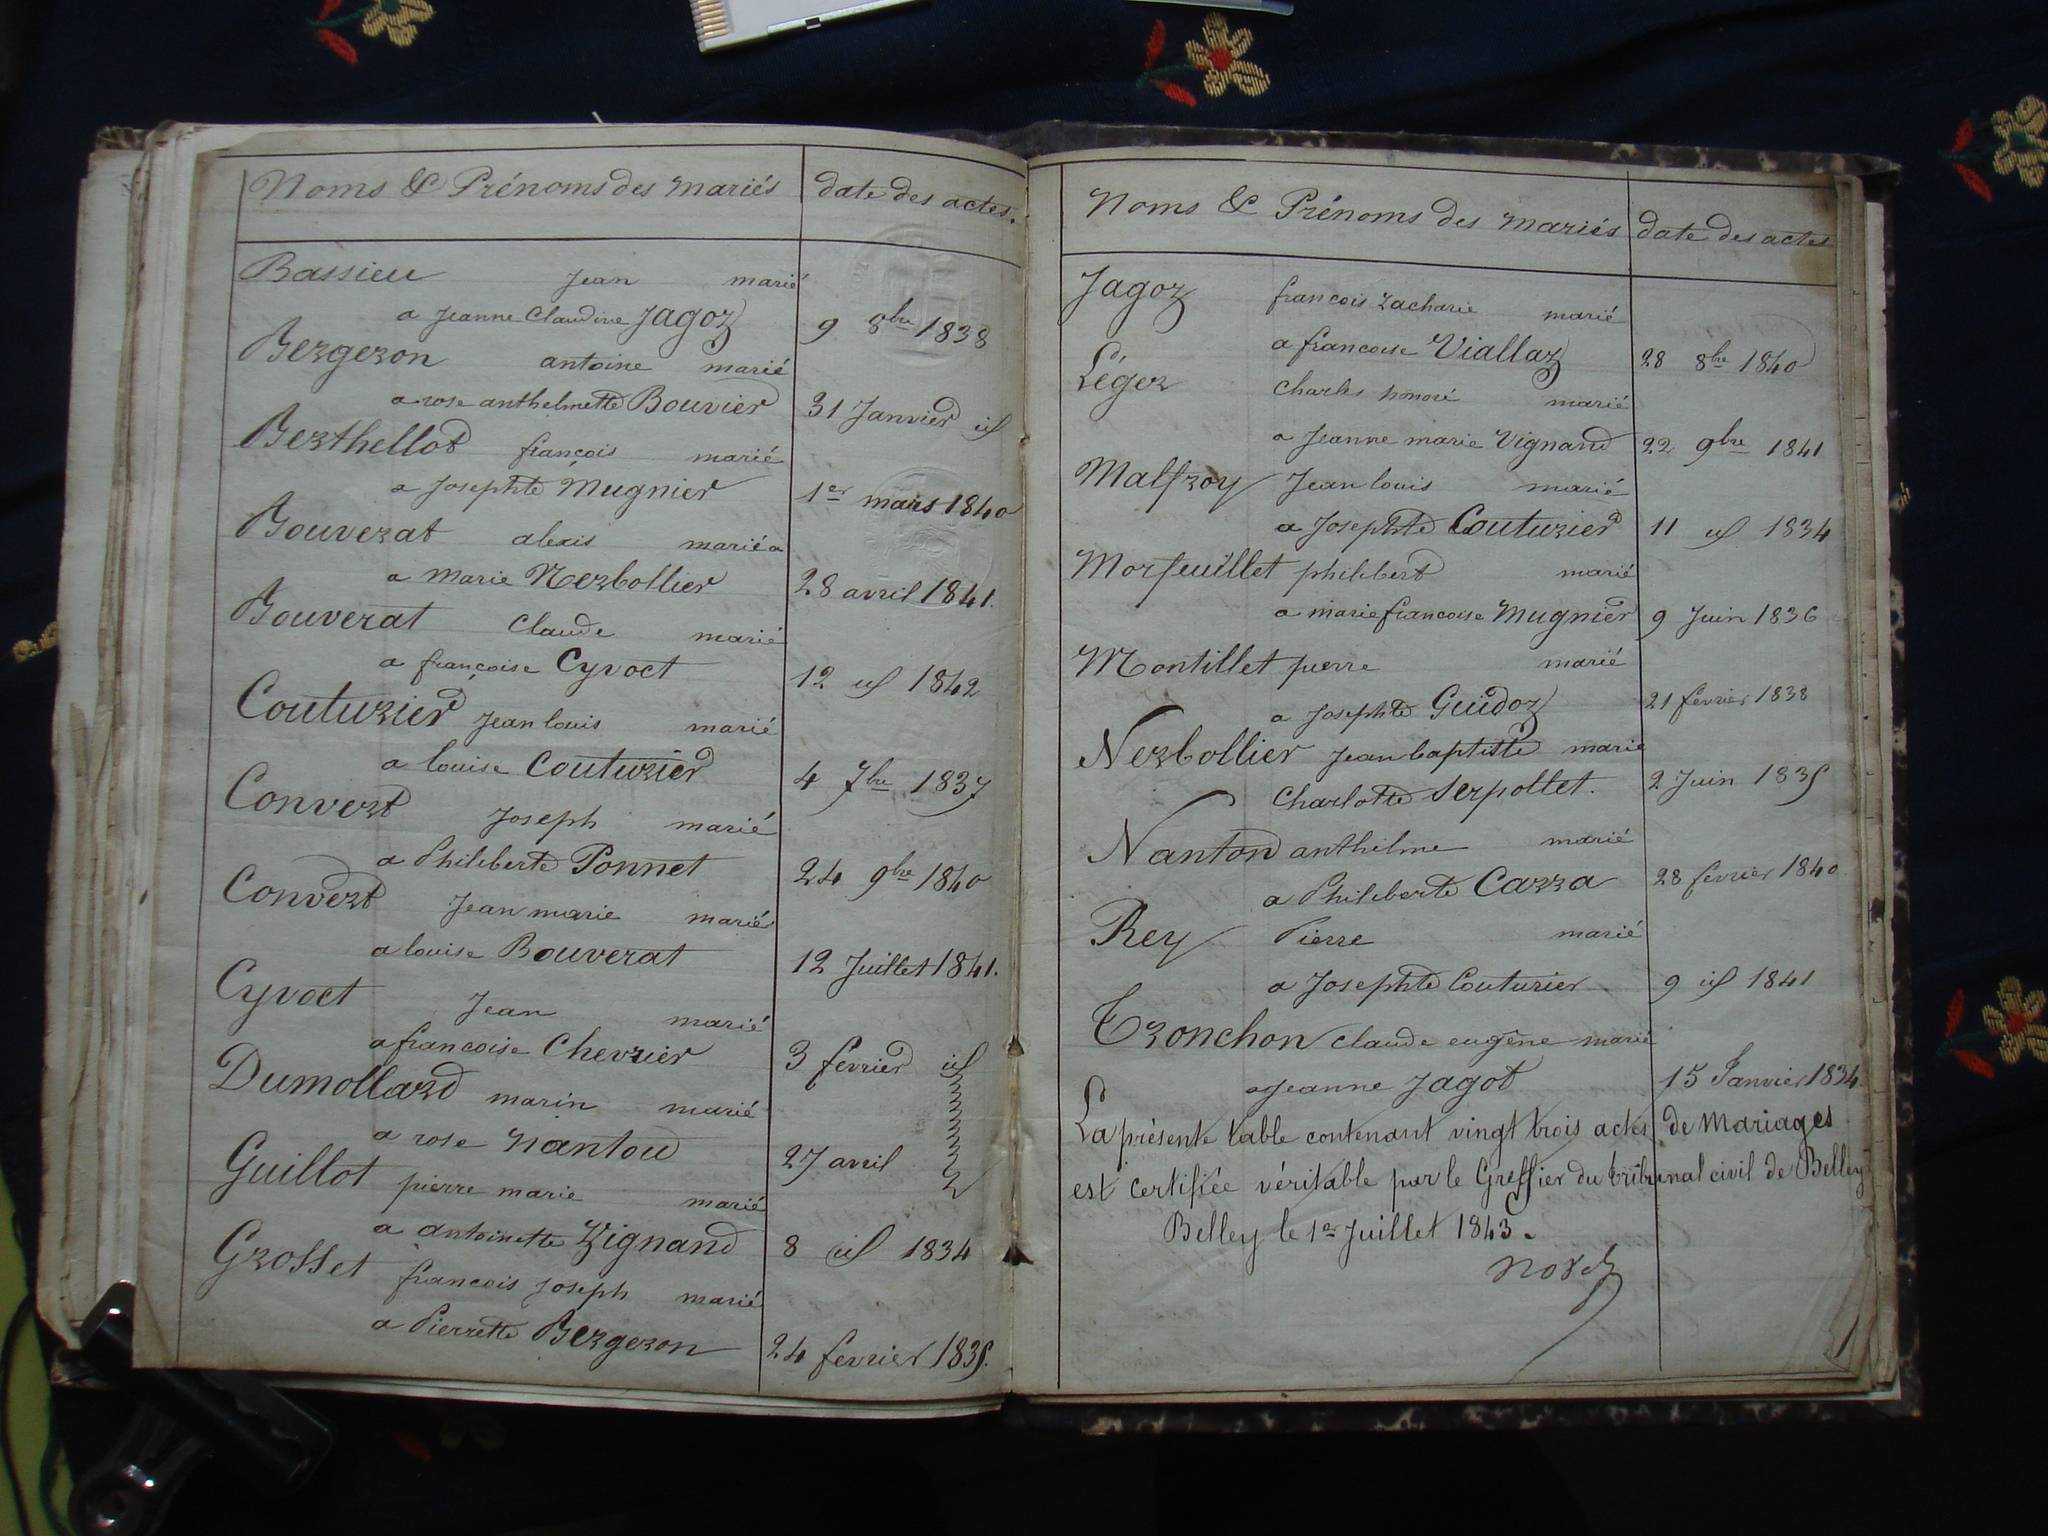 Noms & Prénoms des mariés date des actes.
Bassieu Jean marié
a Jeanne Claudine Jagoz 9 8bre 1838
Bergeron antoine marié
a rose anthelmette Bouvier 31 Janvier id
Berthellod françois marié
a Josephte Mugnier 1er mars 1840
Bouverat alexis marié a
a marie Nerbollier 28 avril 1841.
Bouverat Claude marié
a françoise Cyvoct 12 id 1842
Couturier Jean louis marié
a louise Couturier 4 7bre 1837
Convert Joseph marié
a Philiberte Ponnet 24 9bre 1840
Convert Jean marie marié
a louise Bouverat 12 Juillet 1841.
Cyvoct Jean marié
a francoise Chevrier 3 fevrier id
Dumollard marin marié
a rose Nantou 27 avril
Guillot pierre marie marié
a antoinette Vignand 8 id 1834
Grosset francois Joseph marié
a Pierrette Bergeron 24 fevrier 1835.
Noms & Prénoms des mariés date des actes
Jagoz francois zacharie marié
a francoise Viallaz 28 8bre 1840
Léger Charles honoré marié
a Jeanne marie Vignand 22 9bre 1841
Malfroy Jean louis marié
a Josephte Couturier 11 id 1834
Morfeuillet philibert marié
a marie francoise Mugnier 9 Juin 1836
Montillet pierre marié
a Josephte Guidoz 21 fevrier 1838
Nerbollier Jean baptiste marié
Charlotte Serpollet. 2 Juin 1835
Nanton anthelme marié
a Philiberte Carra 28 fevrier 1840
Rey Pierre marié
a Josephte Couturier 9 id 1841
Tronchon claude eugêne marié
a Jeanne Jagot 15 Janvier 1834.
La présente table contenant vingt trois actes de Mariages
est certifiée véritable par le Greffier du tribunal civil de Belley
Belley le 1er Juillet 1843.